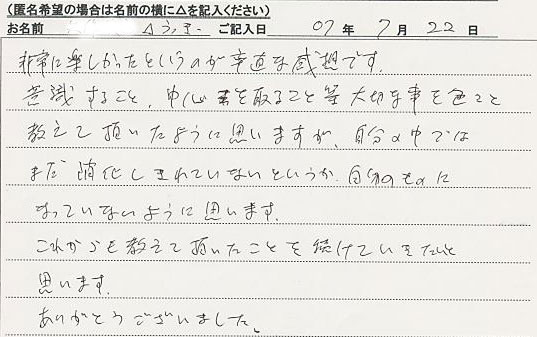 (匿名希望の場合は名前の横に△を記入ください)
お名前 △ ご記入日 07 年 7 月 22 日
非常に楽しかったというのが率直な感想です。
意識すること、中心を取ること等大切な事を色々と
教えて頂いたように思いますが、自分の中では
まだ消化しきれていないというか、自分のものに
なっていないように思います。
これからも教えて頂いたことを続けていきたいと
思います。
ありがとうございました。